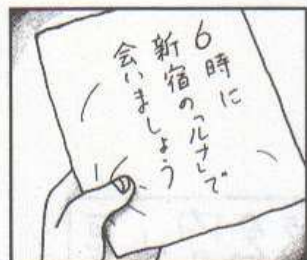 6時に
新宿の「ルナ」で
会いましょう